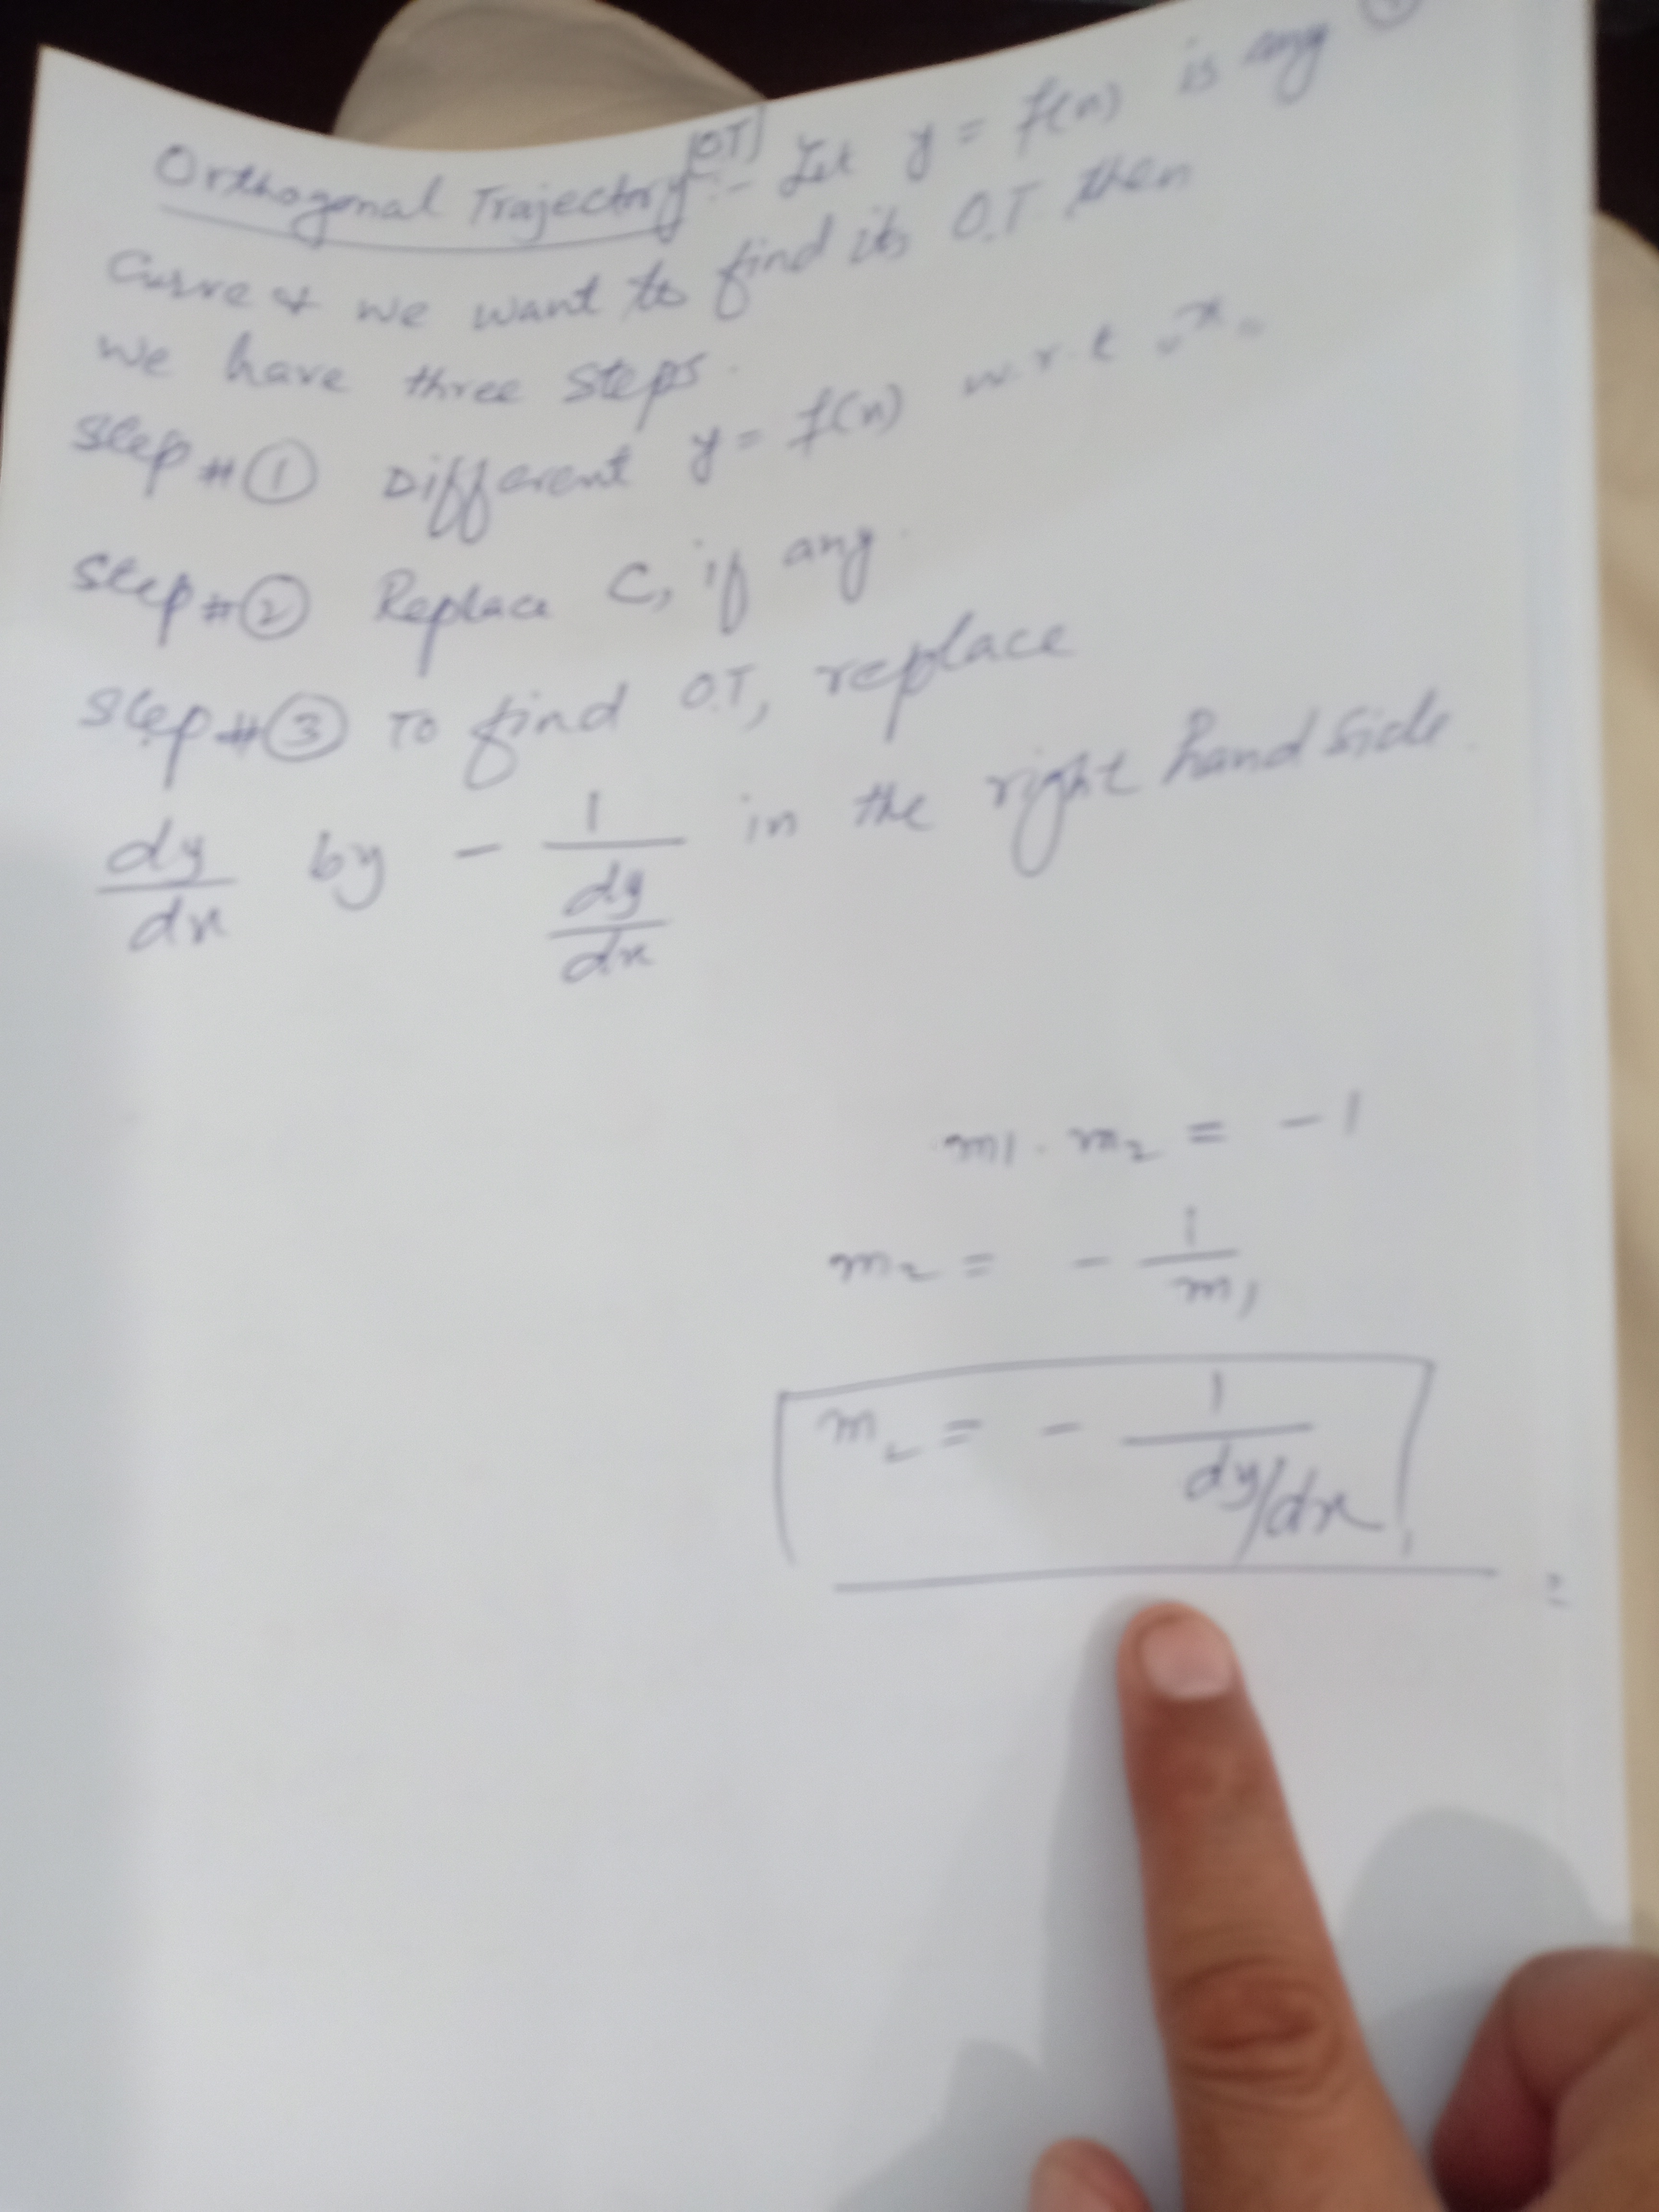 Orthogonal Trajectory [OT] :- Let y = f(x) is any
Curve & we want to find its O.T. then
we have three steps.
Step # ① Different y = f(x) w.r.t "x"
Step # ② Replace C, if any.
Step # ③ To find O.T, replace
dy/dx by - 1/(dy/dx) in the right hand side.
m1 . m2 = - 1
m2 = - 1/m1
m2 = - 1/(dy/dx)